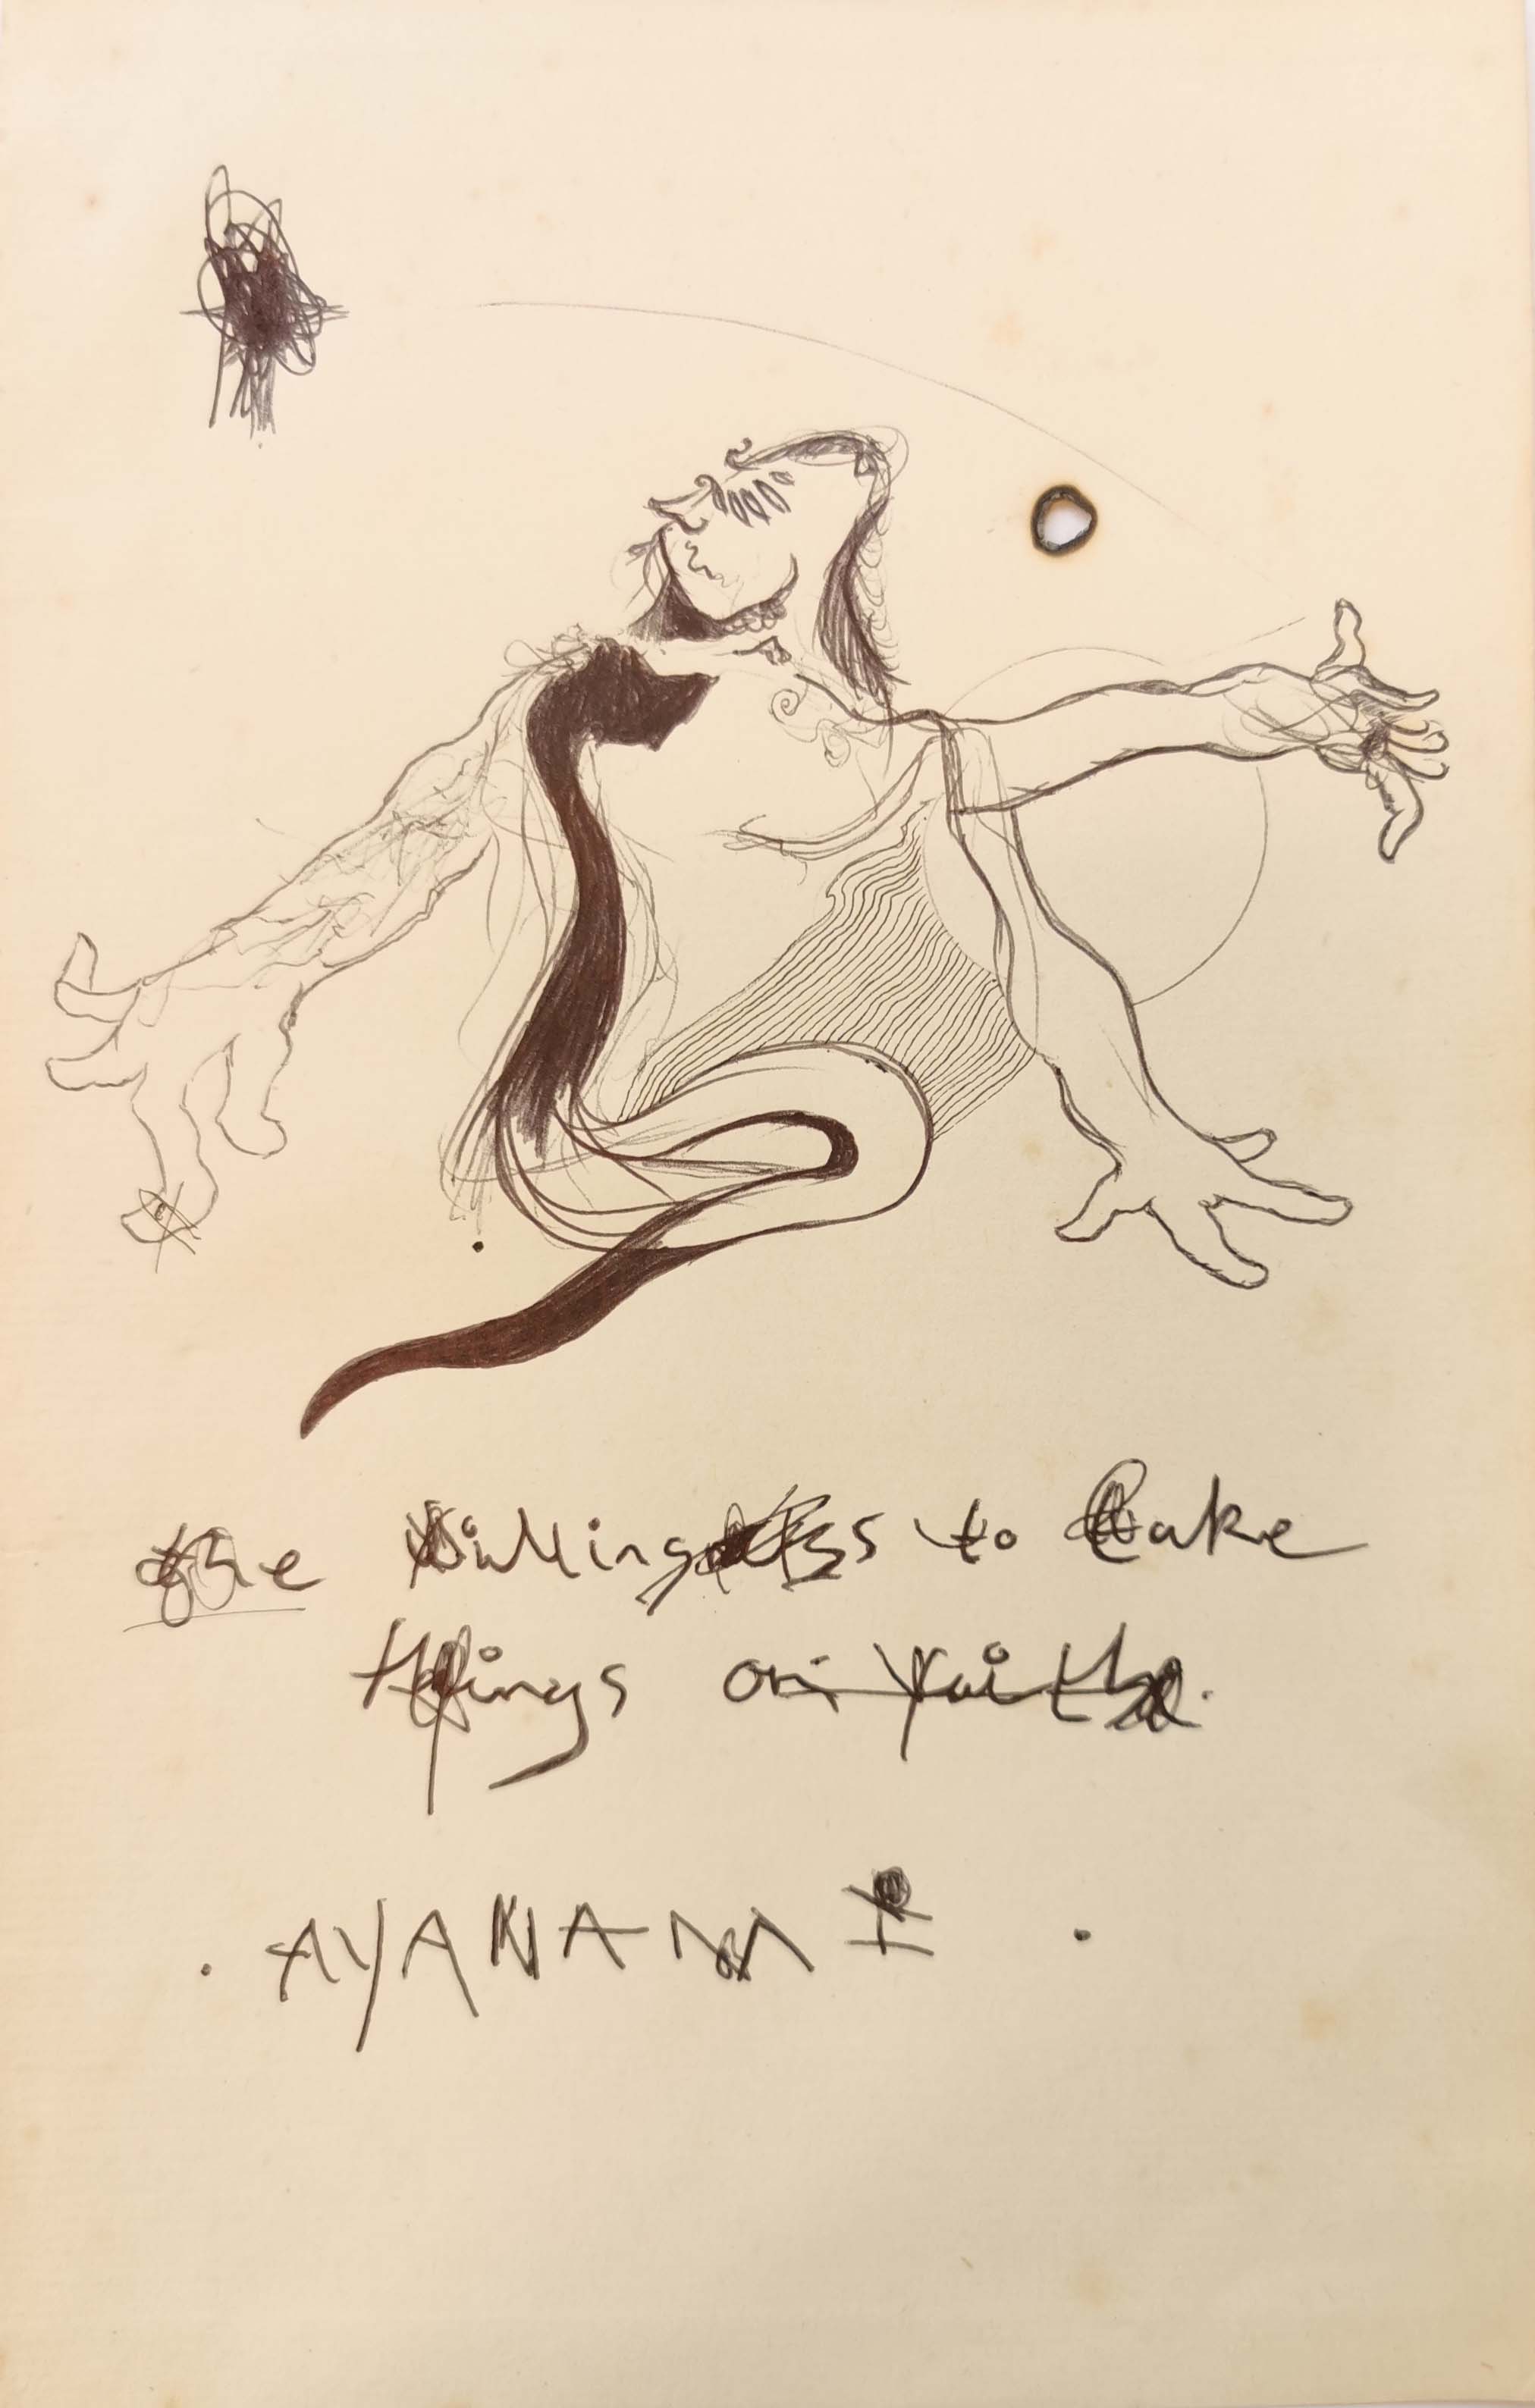 the willingness to take
things on faith.
. AYANAMI .